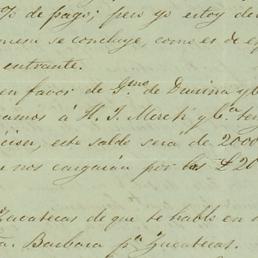 % de pago; pero yo estoy de
se concluye, como es de e
entrante.
en favor de G.mo de Drusina y
á H. J. Merck y C.a
este saldo será de 2000
nos cargarán por los £20
Zacatecas de que te hablo en
Barbara p.a Zacatecas.